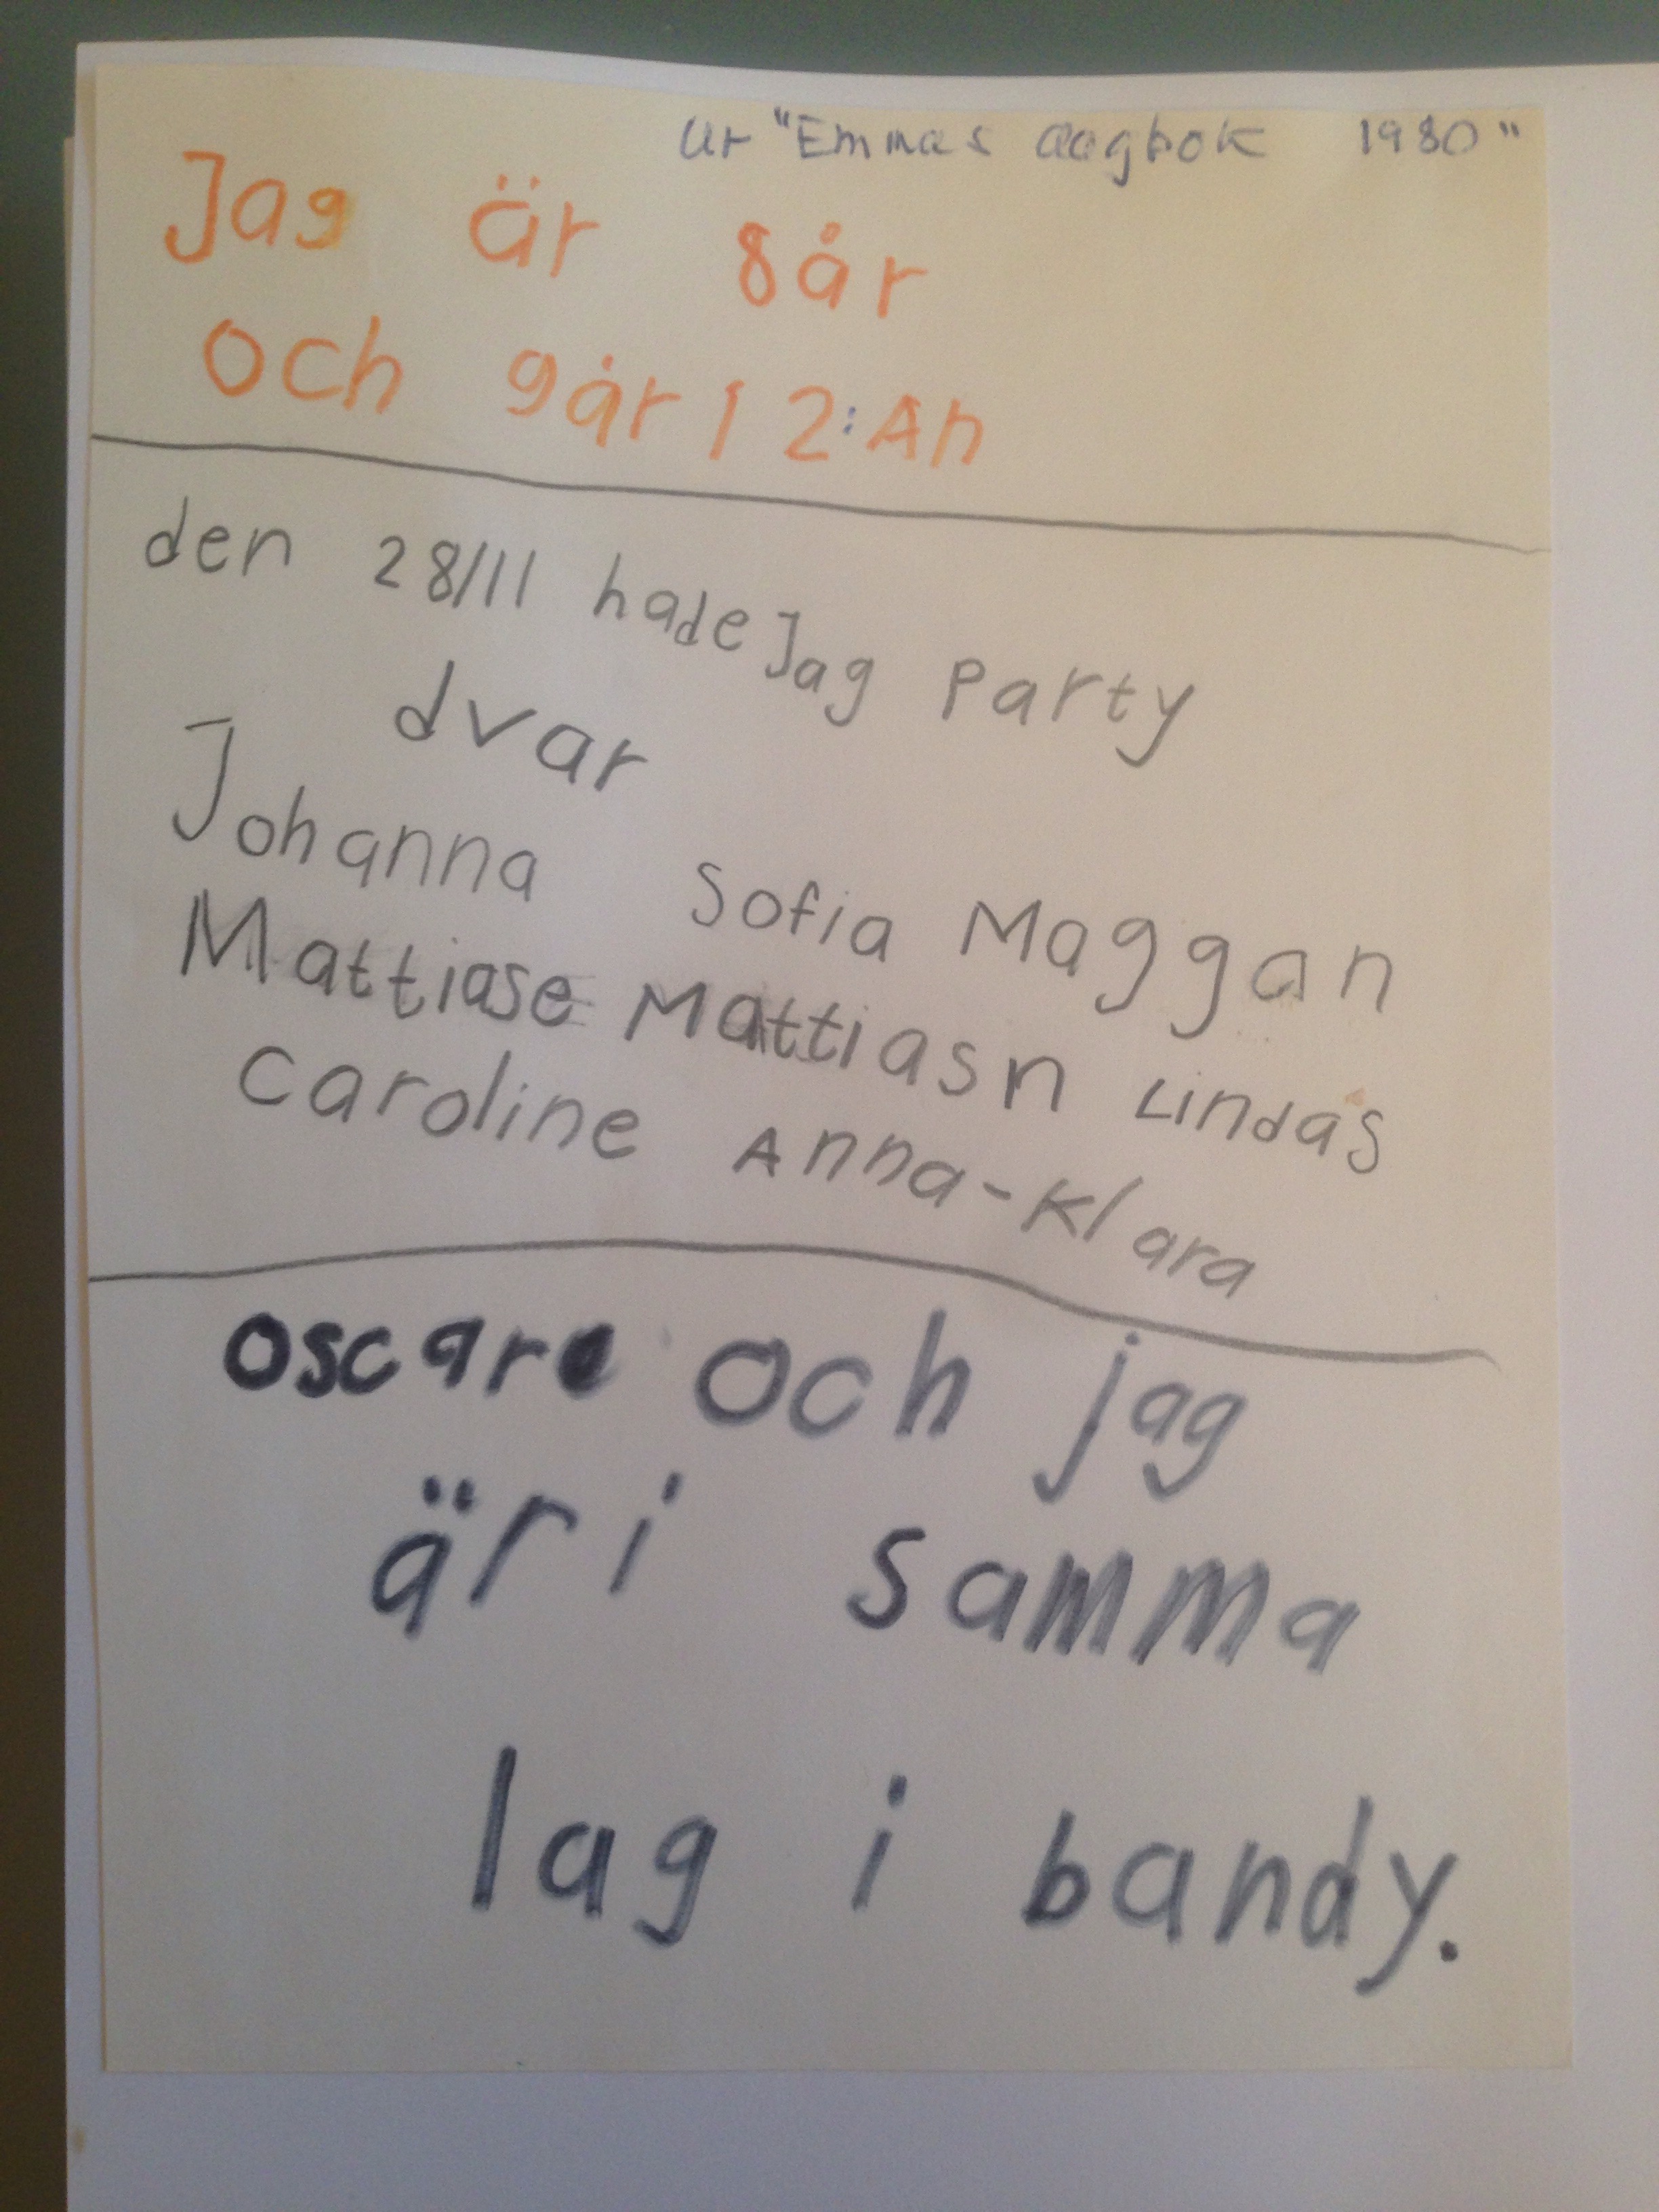 Ur "Emmas dagbok 1980"
Jag är 8år
och går i 2:An
den 28/11 hade Jag Party
dvar
Johanna Sofia Maggan
Mattiase Mattiasn Lindas
Caroline Anna-Klara
oscare och jag
är i samma
lag i bandy.